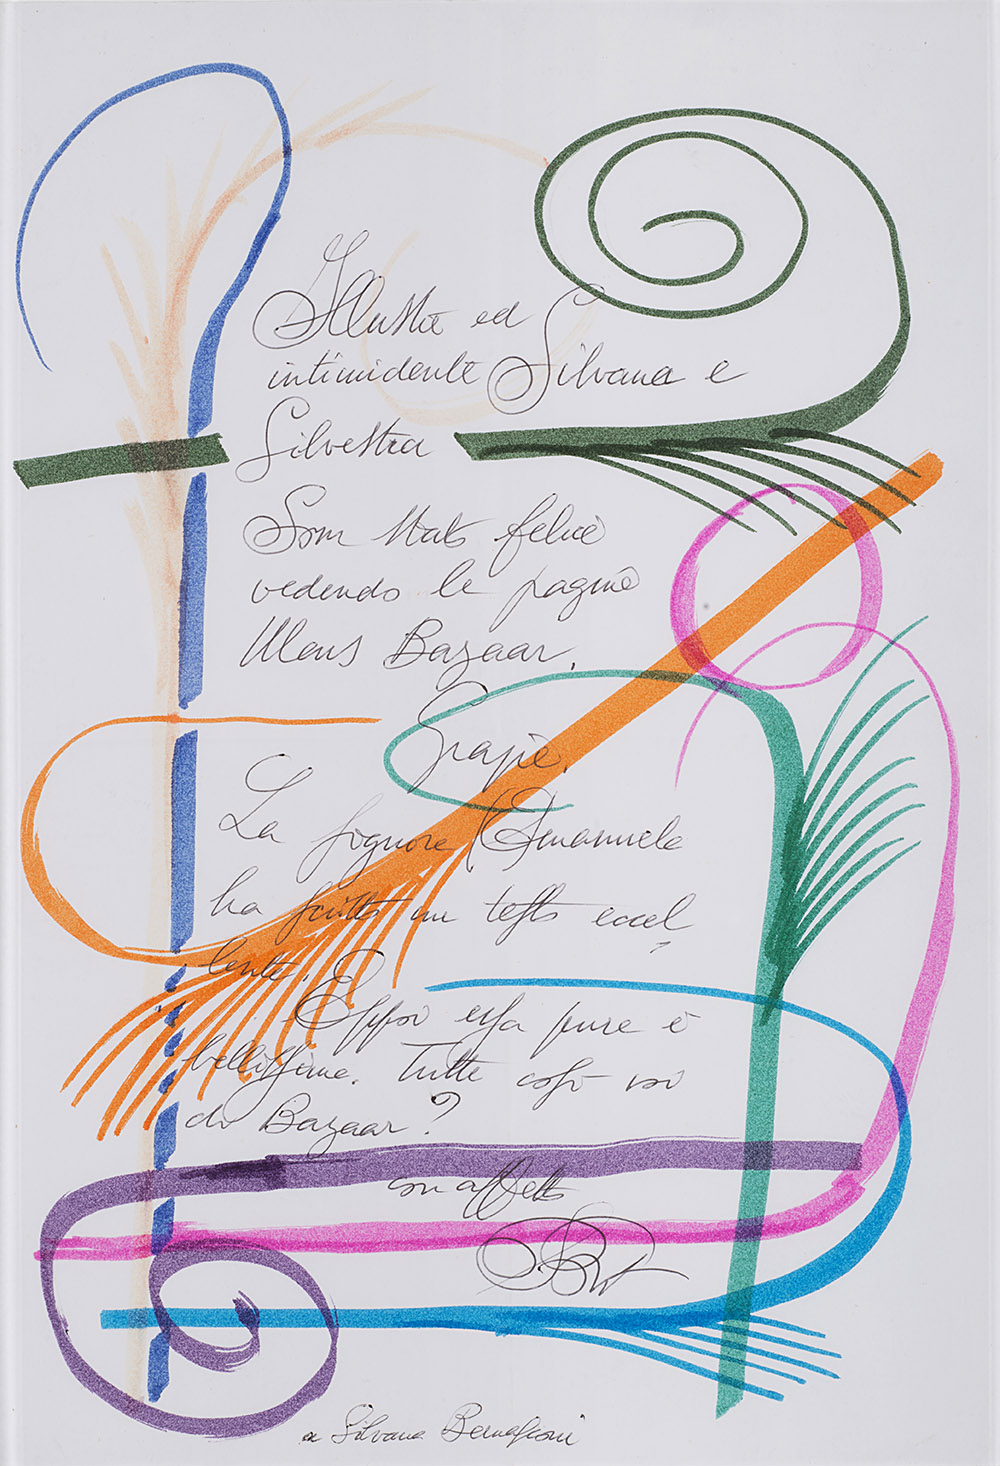 Illustre ed
intimidente Silvana e
Silvestra
Son stato felice
vedendo le pagine
Mens Bazaar.
Grazie.
La signora Emanuela
ha scritto un testo eccel
lente.
Eppoi essa pure è
bellissima. Tutte così voi
di Bazaar?
con affetto
a Silvana Bernasconi